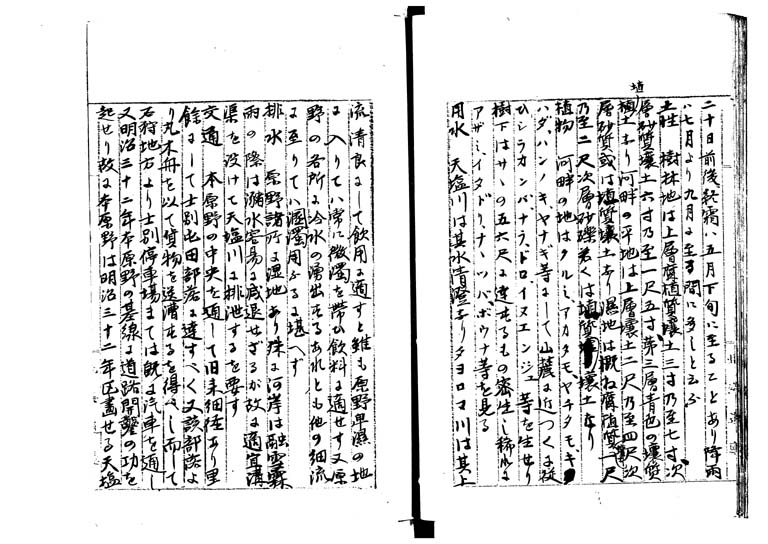 二十日前後終霜ハ五月下旬ニ至ることあり降雨
ハ七月より九月ニ至る間に多しと云ふ
土性 樹林地は上層腐植質壤土三寸乃至七寸次
層砂質壤土六寸乃至一尺五寸第三層青色の壤質
埴
植土なり河畔の平地は上層壤土二尺乃至四尺次
層砂質或は埴質壤土なり濕地は概ね腐植質一尺
乃至二尺次層砂礫若くは埴質壤土なり
植物 河畔の地はクルミ、アカタモ、ヤチタモ、ギ
ハダ、ハンノキ、ヤナギ等にして山麓に近つくに從
ひシラカンバ、ナラ、ドロ、イヌエンジユ等を生せり
樹下はササの五六尺に達するもの密生し稀れに
アザミ、イタドリ、ナナツバ、ボウナ等を見る
用水 天塩川は其水清澄なりタヨロマ川は其上
流清良にして飲用に適すと雖も原野卑濕の地
に入りてハ常に微濁を帶ひ飲料に適せす又原
野の各所に冷水の湧出するあれとも他の細流
に至りてハ溷濁用ふるに堪へす
排水 原野諸所に湿地あり殊に河岸は融雪霖
雨の際は瀦水容易に減退せざるが故に適宜溝
渠を設けて天塩川に排泄するを要す
交通 本原野の中央を通して旧来細徑あり里
餘にして士別屯田部落に達すべく又該部落よ
り丸木舟を以て貨物を送漕するを得べし而して
石狩地方より士別停車場までは既に汽車を通し
又明治三十二年本原野の基線に道路開鑿の功を
起せり故に本原野は明治三十二年区畫せる天塩